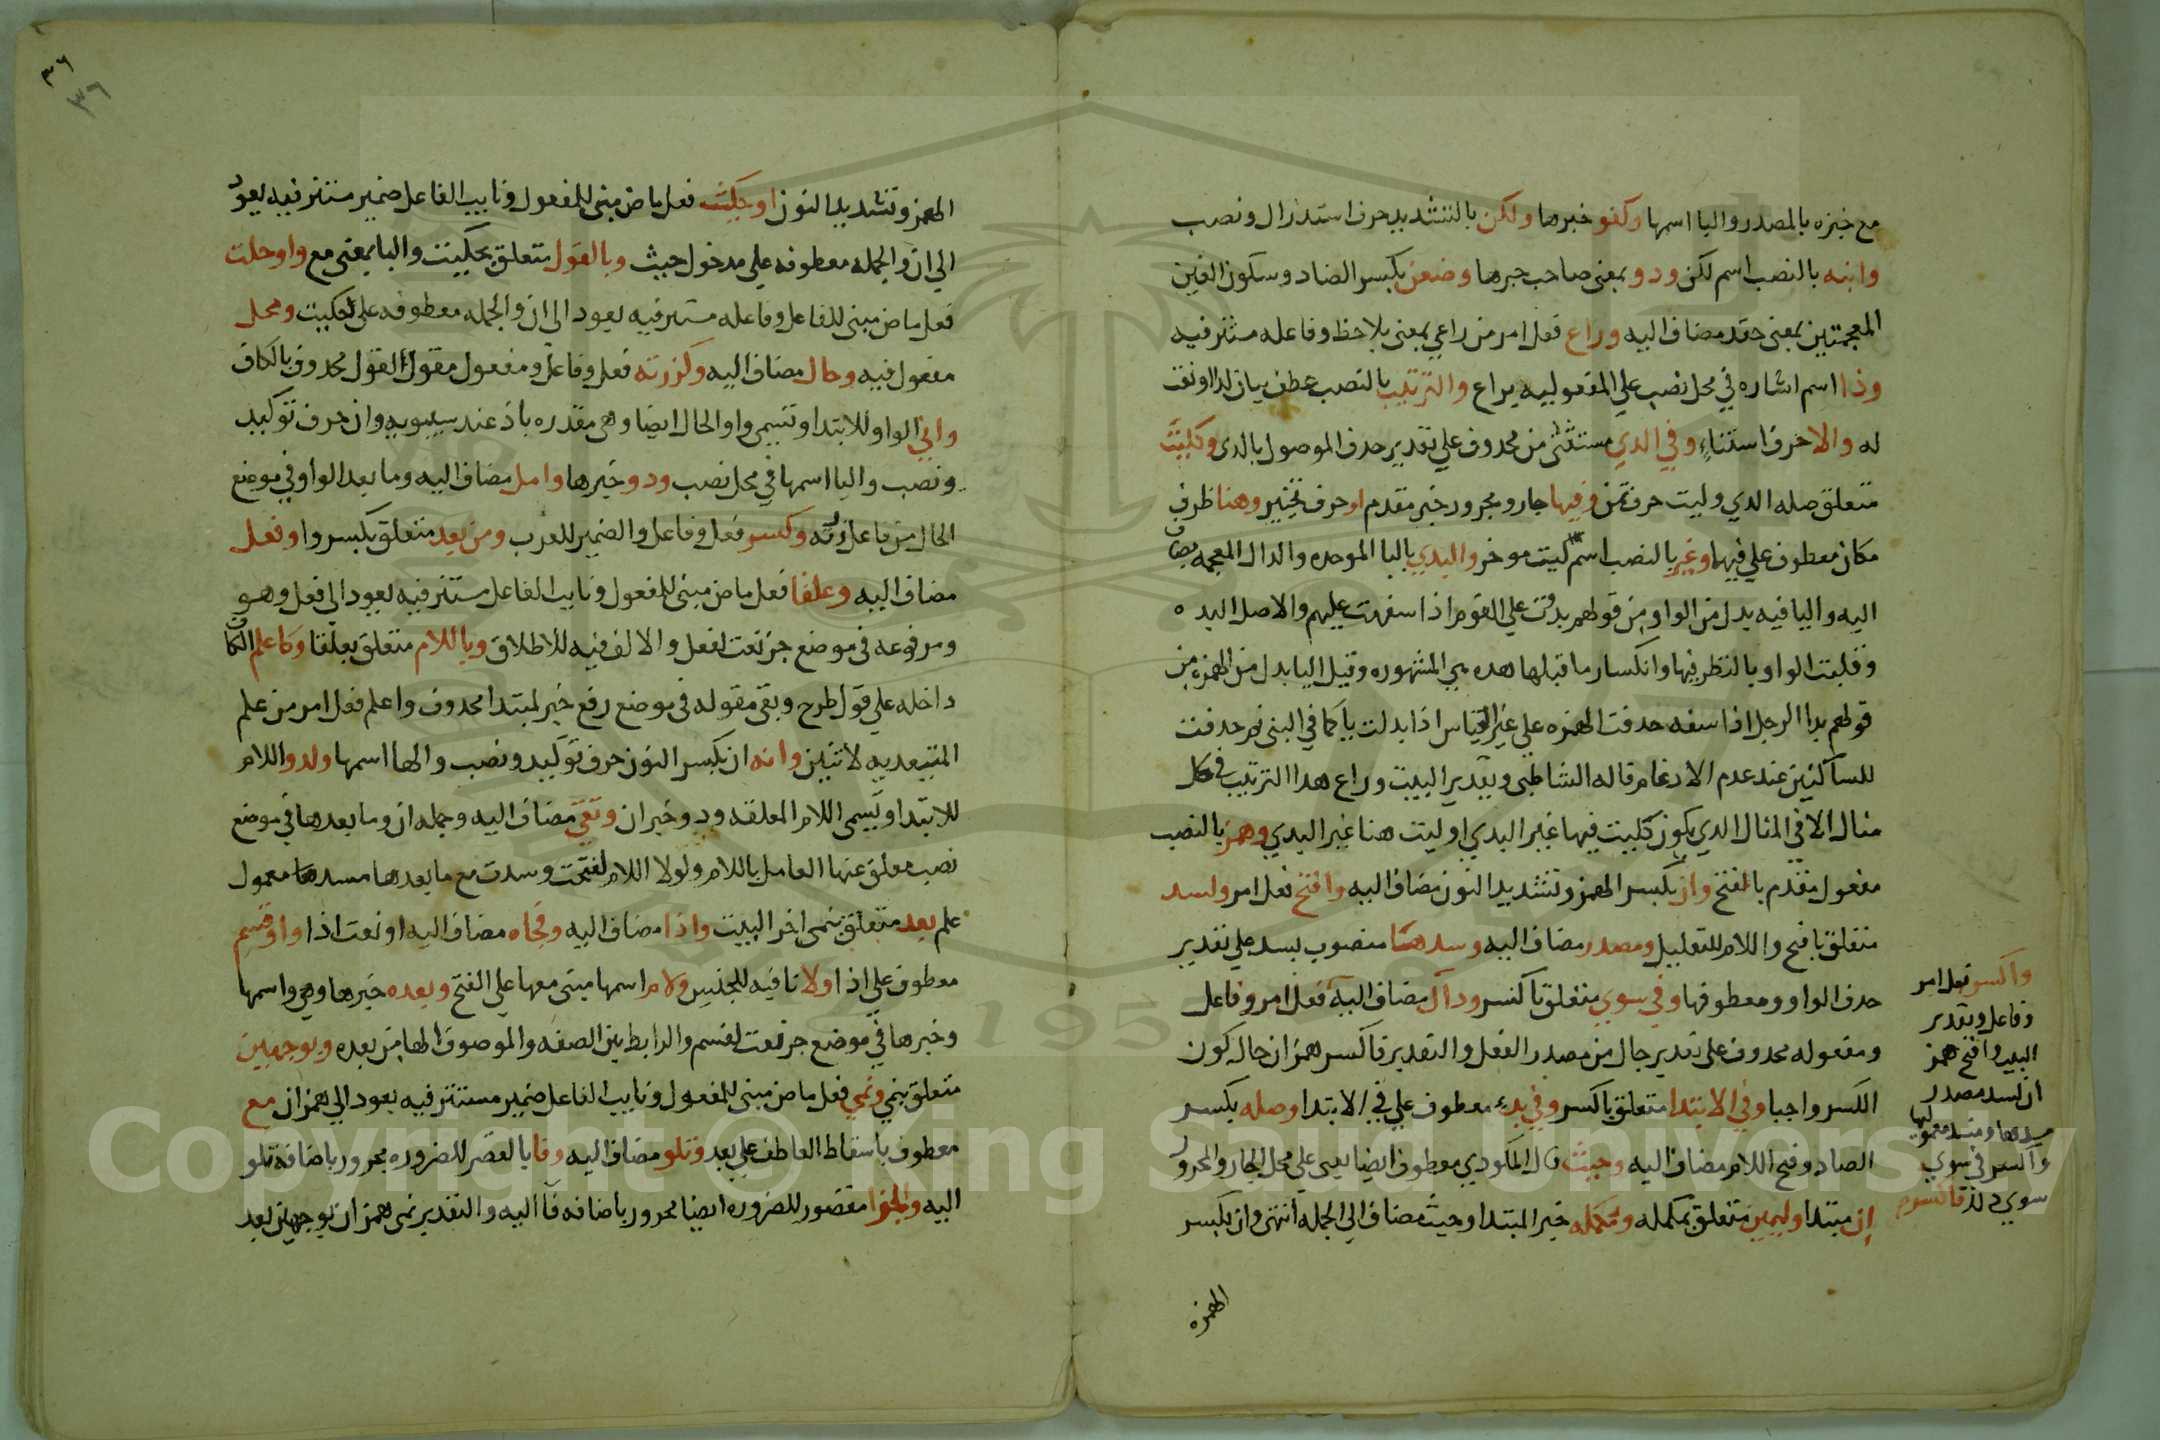 مع خبره بالمصدر واليا اسمها وكفو خبرها ولكن بالتشديد حرف استدراك ونصب
وابنه بالنصب اسم لكن وذو بمعنى صاحب خبرها وضغن بكسر الضاد وسكون الغين
المعجمتين بمعنى حقد مضاف اليه وراع فعل امر من راعي بمعنى يلاحظ وفاعله مستتر فيه
وذا اسم اشاره في محل نصب علي المفعوليه براع والترتيب بالنصب عطف بيان لذا او نعت
له والا حرف استثناء وفي الذي مستثنى من محذوف علي تقدير حذف الموصول بالذي وكليت
متعلق صله الذي وليت حرف تمن وفيها جار ومجرور خبر مقدم او حرف تخيير وهنا ظرف
مكان معطوف علي فيها وغير بالنصب اسم ليت موخر والبذي بالبا الموحده والدال المعجمه مضاف
اليه واليا فيه بدل من الواو من قولهم بذوت علي القوم اذا سفهت عليهم والاصل البذ
وقلبت الواو يا لتطرفها وانكسار ما قبلها هذه هي المشهوره وقيل اليا بدل من الهمزه من
قولهم بذا الرجل اذا سفه حذفت الهمزه علي غير القياس اذ ابدلت يا كما في النبي ثم حذفت
للساكنين عند عدم الادغام قاله الشاطبي وتقدير البيت وراع هذا الترتيب في كل
مثال الا في المثال الذي يكون كليت فيها غير البذي او ليت هنا غير البذي وهمز بالنصب
مفعول مقدم بالفتح وان بكسر الهمز وتشديد النون مضاف اليه وافتح فعل امر ولسد
متعلق بافتح واللام للتعليل ومصدر مضاف اليه وسدها منصوب بسد علي تقدير
حذف الواو ومعطوفها وفي سوي متعلق باكسر وذاك مضاف اليه فعل امر وفاعل
ومفعوله محذوف علي تقدير حال من مصدر الفعل والتقدير فاكسر همز ان حال كون
الكسر واجبا وفي الابتدا متعلق باكسر وفي بدء معطوف علي في الابتدا وصله بكسر
الصاد وفتح اللام مضاف اليه وحيث قال المكودي معطوف ايضا يعني علي محل الجار والمجرور
ان مبتدا وليمين متعلق بمكمله ومكمله خبر المبتدا وحيث مضاف الي الجمله انتهى وان بكسر
الهمزه
واكسر فعل امر
وفاعل وتقدير
البيت وافتح همز
ان لسد مصدر
مسدها ومسد معموليها
واكسر في سوي
سوي ذلك فاكسره
٣٦
٣٦
الهمز وتشديد النون او حكيت فعل ماض مبني للمفعول ونايب الفاعل ضمير مستتر فيه يعود
الي ان والجمله معطوفه علي مدخول حيث وبالقول متعلق بحكيت والبا بمعنى مع واو حلت
فعل ماض مبني للفاعل وفاعله مستتر فيه يعود الي ان والجمله معطوفه على حكيت ومحل
مفعول فيه وحال مضاف اليه وكزرته فعل وفاعل ومفعول مقول القول محذوف بالكاف
واني الواو للابتدا وتسمى واو الحال ايضا وهي مقدره باذ عند سيبويه وان حرف توكيد
ونصب واليا اسمها في محل نصب وذو خبرها وامل مضاف اليه وما بعد الواو في موضع
الحال من فاعل زرته وكسر فعل وفاعل والضمير للعرب ومن بعد متعلق بكسروا وفعل
مضاف اليه وعلقا فعل ماض مبني للمفعول ونايب الفاعل مستتر فيه يعود الي فعل وهو
ومرفوعه في موضع جر نعت لفعل والالف فيه للاطلاق وباللام متعلق بعلقا وكاعلم الكاف
داخله علي قول طرح وبقى مقوله في موضع رفع خبر لمبتدا محذوف واعلم فعل امر من علم
المتعديه لاثنين وانه ان بكسر النون حرف توكيد ونصب والها اسمها ولذو اللام
للابتدا وتسمى اللام المعلقه وذو خبر ان وتقي مضاف اليه وجمله ان وما بعدها في موضع
نصب معلق عنها العامل باللام ولولا اللام لفتحت وسدت مع ما بعدها مسدها معمول
علم بعد متعلق بنمي اخر البيت واذا مضاف اليه وفجاه مضاف اليه او نعت اذا واو قسم
معطوف علي اذا ولا نافيه للجنس ولام اسمها مبني معها علي الفتح وبعده خبرها وهي واسمها
وخبرها في موضع جر نعت لقسم والرابط بين الصفه والموصوف الها من بعده وبوجهين
متعلق بنمي ونمي فعل ماض مبني للمفعول ونايب الفاعل ضمير مستتر فيه يعود الي همز ان مع
معطوف باسقاط العاطف علي بعد وتلو مضاف اليه وفا بالقصر للضروره مجرور باضافة تلو
اليه والجزا مقصور للضروره ايضا مجرور باضافه فا اليه والتقدير نمى همز ان بوجهين بعد
Copyright © King Saud University
1957